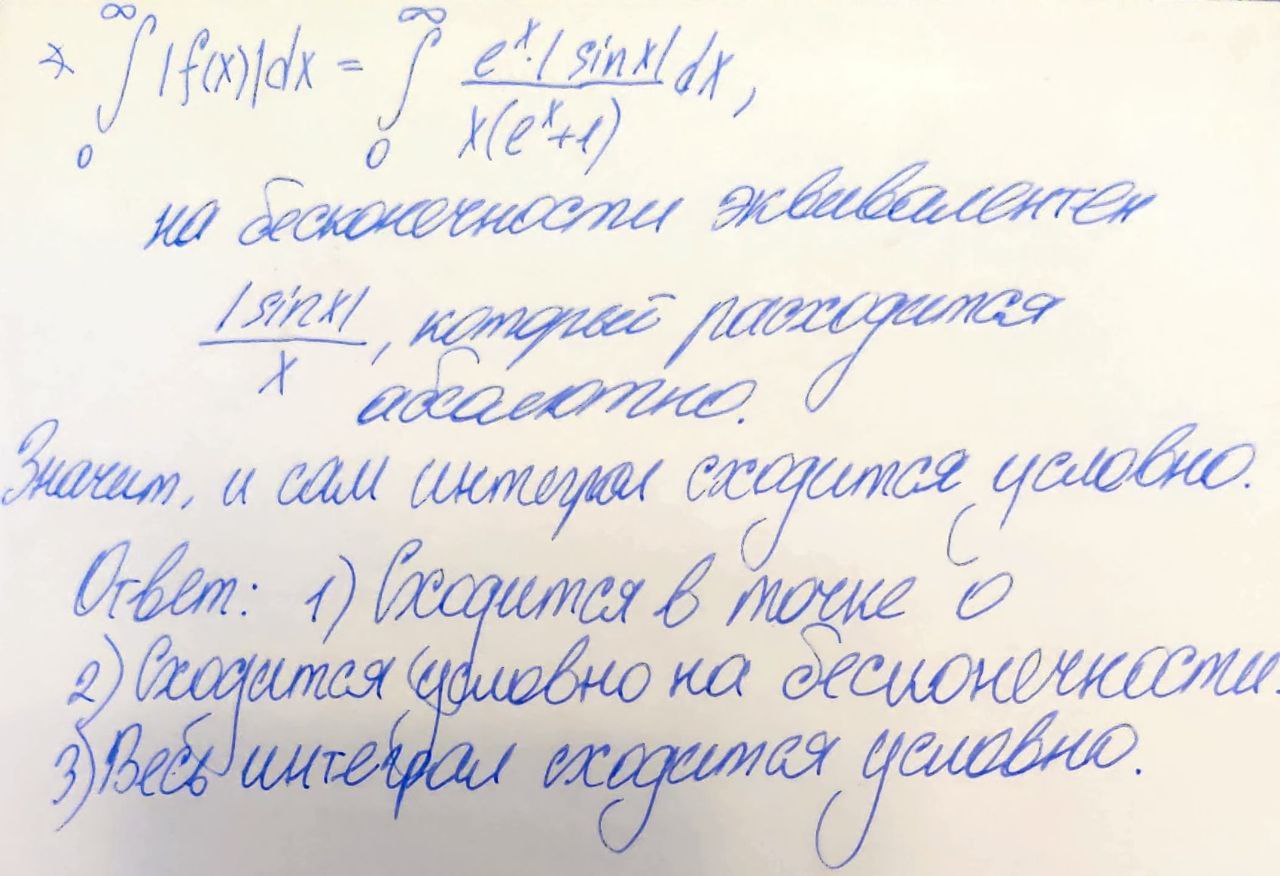 * ∫₀^∞ |f(x)|dx = ∫₀^∞ (e^x·|sinx|)/(x(e^x+1)) dx,
на бесконечности эквивалентен
|sinx|/x, который расходится
абсолютно.
Значит, и сам интеграл сходится условно.
Ответ: 1) Сходится в точке 0
2) Сходится условно на бесконечности.
3) Весь интеграл сходится условно.